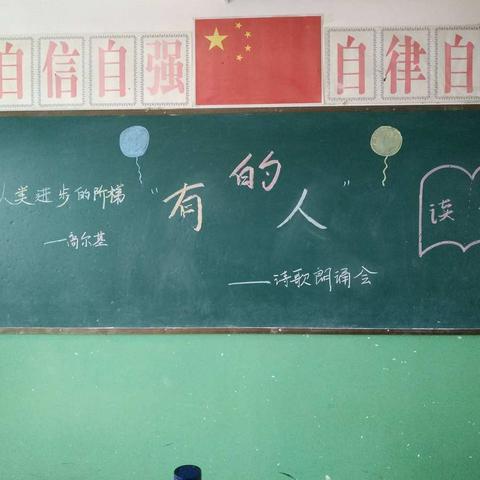 自信自强 自律自
人类进步的阶梯
——高尔基
"有的人"
——诗歌朗诵会
读